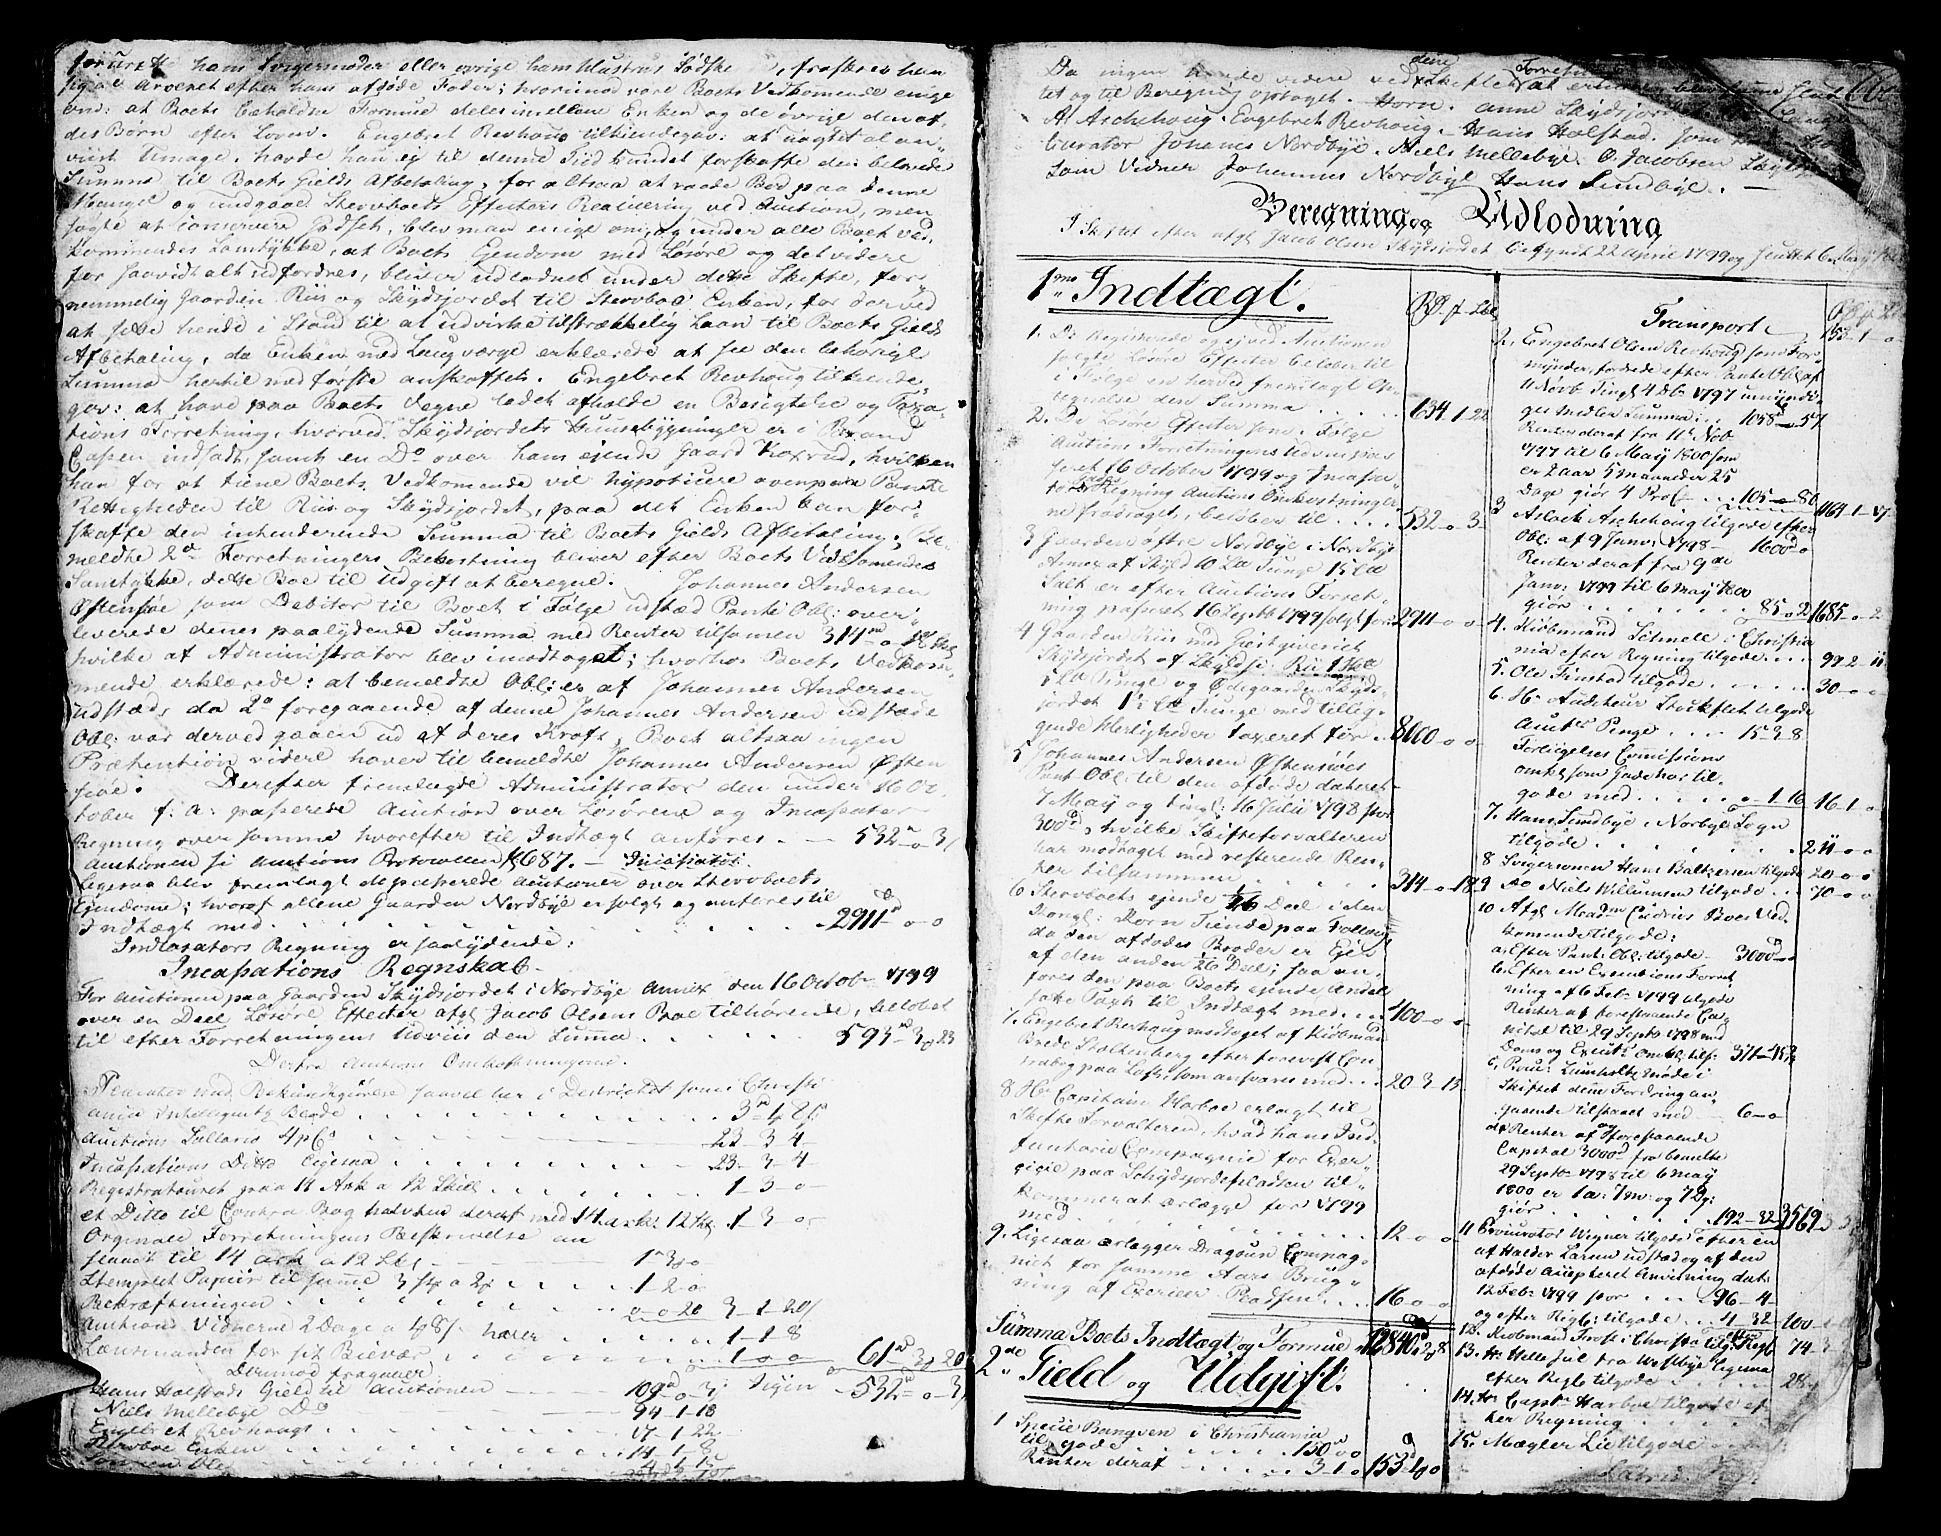 hans Svigermoder eller øvrige hans Hustrues
Arvenet efter hans afdøde Fader; hvorimod vare Boets Vedkommende enige
om: at Boets beholdne Formue deles imellem Enken og de øvrige den af,
des Børn efter Loven. Engebret Revhoug tilkiendegav: at uagtet al an,
viist Umage, havde han ej til denne Tiid kundet forskaffe den belavede
Summa til Boets Gields Afbetaling, for altsaa at raade Bod paa denne
Mangel og undgaae Stervboets Effecters Realisering ved Auction, men
søgte at conservere Godset, blev man enige om, og under alle Boets ved,
kommendes Samtykke, at Boets Eiendom med Løsøre og det videre
for saavidt alt udfordres, bliver udlodnet under dette Skifte, for,
nemmelig Gaarden Riis og Skydsjordet til Stervboe Enken, for derved
at sætte hende i Stand til at udvirke tilstrækkelig Laan til Boets Gields
Afbetaling, da Enken med Laugværge erklærede at see den behøvige
Summa hertil med første anskaffet. Engebret Revhoug tilkiende,
gav: at have paa Boets Vegne ladet afholde en Besigtelse og Taxa
tions Forretning, hvorved Skydsjordets Huusebygninger er i Brand
Cassen indsadt, samt en Do over hans ejende Gaard Koxrud, hvilken
han for at tiene Boets Vedkomende vil hypotisere ovenpaa Pante
Rettigheden til Riis og Skydsjordet, paa det Enken kan for,
skaffe den inhenderende Summa til Boets Gields Afbetaling; Be,
meldte 2de Forretningers Bekostning bliver efter Boets Vedkomendes
Samtykke, dette Boe til Udgift at beregne. Johannes Andersen
Østensøe som Debitor til Boet i Følge udstæd Pante Obl: over,
leverede denes paalydende Summa med Renter tilsamen 314
hvilke af Administrator blev imodtaget; hvorhos Boets Vedkom,
mende erklærede: at bemeldte Obl: er af Johannes Andersen
udstæd, da 2de foregaaende af denne Johannes Andersen udstæde
Obl: var derved gaaen ud af deres Kraft, Boet altsaa ingen
Prætention videre haver til bemeldte Johannes Andersen Østen
søe. Derefter fremlægde Administrator den under 16 Oc
tober f: a: passerede Auction over Løsørene og Incassator
Regning over samme hvorefter til Indtægt anføres. 532-0-3
Auctionen se Auctions Protocollen 687.
Ligesaa blev fremlagt de passerede Auctioner over Stervboets
Ejendome; hvoraf allene Gaarden Nordbye er solgt og anføres til
Indtægt med . . . . 2911-0-0
Incassators Regning er saalydende:
Incassations Regnskab.
For Auctionen paa Gaarden Skydsjordet i Nordbye Annex den 16 Octobr 1799
over en Deel Løsøre Effecter afgl Jacob Olsens Boe tilhørende, beløbet
til efter Forretningens Udviis den Summa . . . . 593-3-23
Derfra Auctions Omkostningerne.
Placater med Bekiendtgiørelse saavel her i Districtet som i Christi
ania Intelligentz Blade . . . . 3-1-8
Auctions Sallario 4 pCt . . . . 23-3-4
Incassations Ditto Ligesaa . . . . 23-3-4
Registraturet paa 14 Ark a 12 Skil . . . . 1-3-0
et Ditto til Contra Bog halvten deraf med 14 ark a 12 Sk 1-3-0
Orginale Forretningens Beskrivelse an
sendt til 14 ark a 12 Sk . . . . 1-3-0
Stemplet Papiir til samme . . . . 1-2-0
Bekræftningen . . . . 0-0-20 3-1-20
Auctions Vidnerne 2 Dage a 48 s haver . . . . 1-1-8
Lænsmanden for sit Bievær . . . . 1-0-0 61-3-20
igien 532-0-3
Hans Holstads Gield til Auctionen 109-0-3
Niels Mellebye Do 94-1-18
Engebret Revhougt 17-1-22
Stervboe Enken 14-1-8
Da ingen havde videre ved Skiftet at erindre
tet og til Beregning optaget. Horn. Anne Skydsjor
A: Aschehoug. Engebret Revhoug. Hans Holstad. som
Curator Johanes Nordbye. Niels Mellebye. O. Jacobsen
Som Vidner Johannes Nordbye Hans Lundbye.
Beregning og Udlodning
I Skiftet efter afgl Jacob Olsen Skydsjordet begyndt 22 April 1799 og sluttet 6
1mo Indtægt.
1. De Registerede og ej ved Auctionen
solgte Løsøre Effecter beløber til
i Følge en herved fremlagt Op
tegnelse den Summa . . . . 634-1-22
2. De Løsøre Effecter som i Følge
Auctions Forretningens Udviis pas
seret 16 October 1799 og Incassa
tors Regning Auctions Omkostninger
ne fradraget, beløber til . . . . 532-0-3
3 Gaarden østre Nordbye i Nordbye
Annex af Skyld 10 Lb Tunge 15 Lb
Salt er efter Auctions Forret,
ning passeret 16 Septbr 1799 solgt for 2911-0-0
4 Gaarden Riis med Giestgiverie
Skydsjordet af Skyld
Tunge og Ødegaarden Skyds,
jordet 1½ Lb Tunge med tillig,
gende Herligheder taxeret for . . 8000-0-0
5 Johannes Andersen Østensøes
Pant Obl: til den afdøde dateret
7 May og tingl: 16 Julii 1798 stor
300, hvilke Skifteforvalteren
har modtaget med resterende Ren,
ter tilsammen . . . . 314-0-18
6 Stervboets ejende 1/26 Deel i den
Kongl: Korn Tiende paa Follou,
da den afdødes Broder er Eier
af den anden 26 Deel; saa an,
føres den paa Boets ejende Andel
fake Taxt til Indtægt med . . . 400-0-0
7. Engebret Revhoug modtaget af Kiøbmand
Brede Stoltenberg efter foreviist Con
trabog paa Last, som ansvares med . . . 20-3-13
8 Hr Capitain Harboe erlagt til
Skifte Forvalteren, hvad hans Ind,
fanterie Compagnie for Exer
gigie paa Schydsjordspladsen til,
kommer at erlægge for 1799
med . . . . 12-0-0
9. Ligesaa erlægger Dragoun Compag
niet for samme Aars Brug,
ning af Exercier Pladsen . . . . 16-0-0
Summa Boets Indtægt og Formue 12840-2-8
2de Gield og Udgift.
1 Specie Banqven i Christiania
til gode . . . . 150-0
Renter deraf . . . . 3-1-0 153-1-0
Transport 153-1-0
2. Engebret Olsen Revhoug som For
mynder, fordrede efter Pante Obl: af
11 Novb Tingl 4 Dbr 1797 umyndi,
ges Midler Summa: . . 1058-57
Renter deraf fra 11te Nob
1797 til 6 May 1800 som
er 2 aar 5 maaneder 25
Dage giør 4 Prct . . . 105-80 1164-1-17
3 Aslack Aschehoug tilgode efter
Obl: af 9 Janv: 1798 - 1600
Renter deraf fra 9de
Janv: 1799 til 6 May 1800
giør . . . . 85-0-2 1685-0-2
4. Kiøbmand Schmell i Christia
nia efter Regning tilgode . . . 992-11
5. Ole Finstad tilgode . . . . 30-0-0
6. Hr Auditeur Stockflet tilgode
Auct: Penge . . . . 15-3-8
Forligelses Commissions
omk: som Gade har til,
gode med . . . . 1-16 16-1-0
7. Hans Lundbye i Norbye Sogn
tilgode . . . . 211-0-0
8 Svigersønnen Hans Baltzersen tilgode 20-0-0
9 Do Niels Willumsen tilgode . . 70-0-0
10 Afgl Madm Cudries Boes Ved
komende tilgode:
a. Efter Pant. Obl: tilgode 3000-0
b. Efter en Executions Forret
ning af 6 Feb: 1799 tilgode
Renter af forestaaende Ca
pital til 29 Septbr 1798 med
Doms og Execut: Omk: tils: 371-1
c. Procu: Lumholtz møde i
Skiftet denne Fordring an,
gaaende tilstaaet med 6-0
d. Renter af forestaaende
Capital 3000 fra bemelte
29 Septbr 1798 til 6 May
1800 er 1 a: 7 m: og 7 Dg:
giør . . . . 192-32 3569
11 Procurator Wigner tilgode efter en
af Halder Larsen udstæd og af den
afdøde accepteret Anviisning dat:
12 Feb: 1799 stor . . . 96-4
og efter Regl: tilgode . . 4-32 100
12. Kiøbmand Frost i Chrsta tilg: efter Regl 74
13. Hr Helle Juul fra Westbye ligesaa
efter Regl tilgode . . . . 28
14. Hr Capt: Harboe tilgode ef,
ter Regning
15. Mægler Lie tilgode